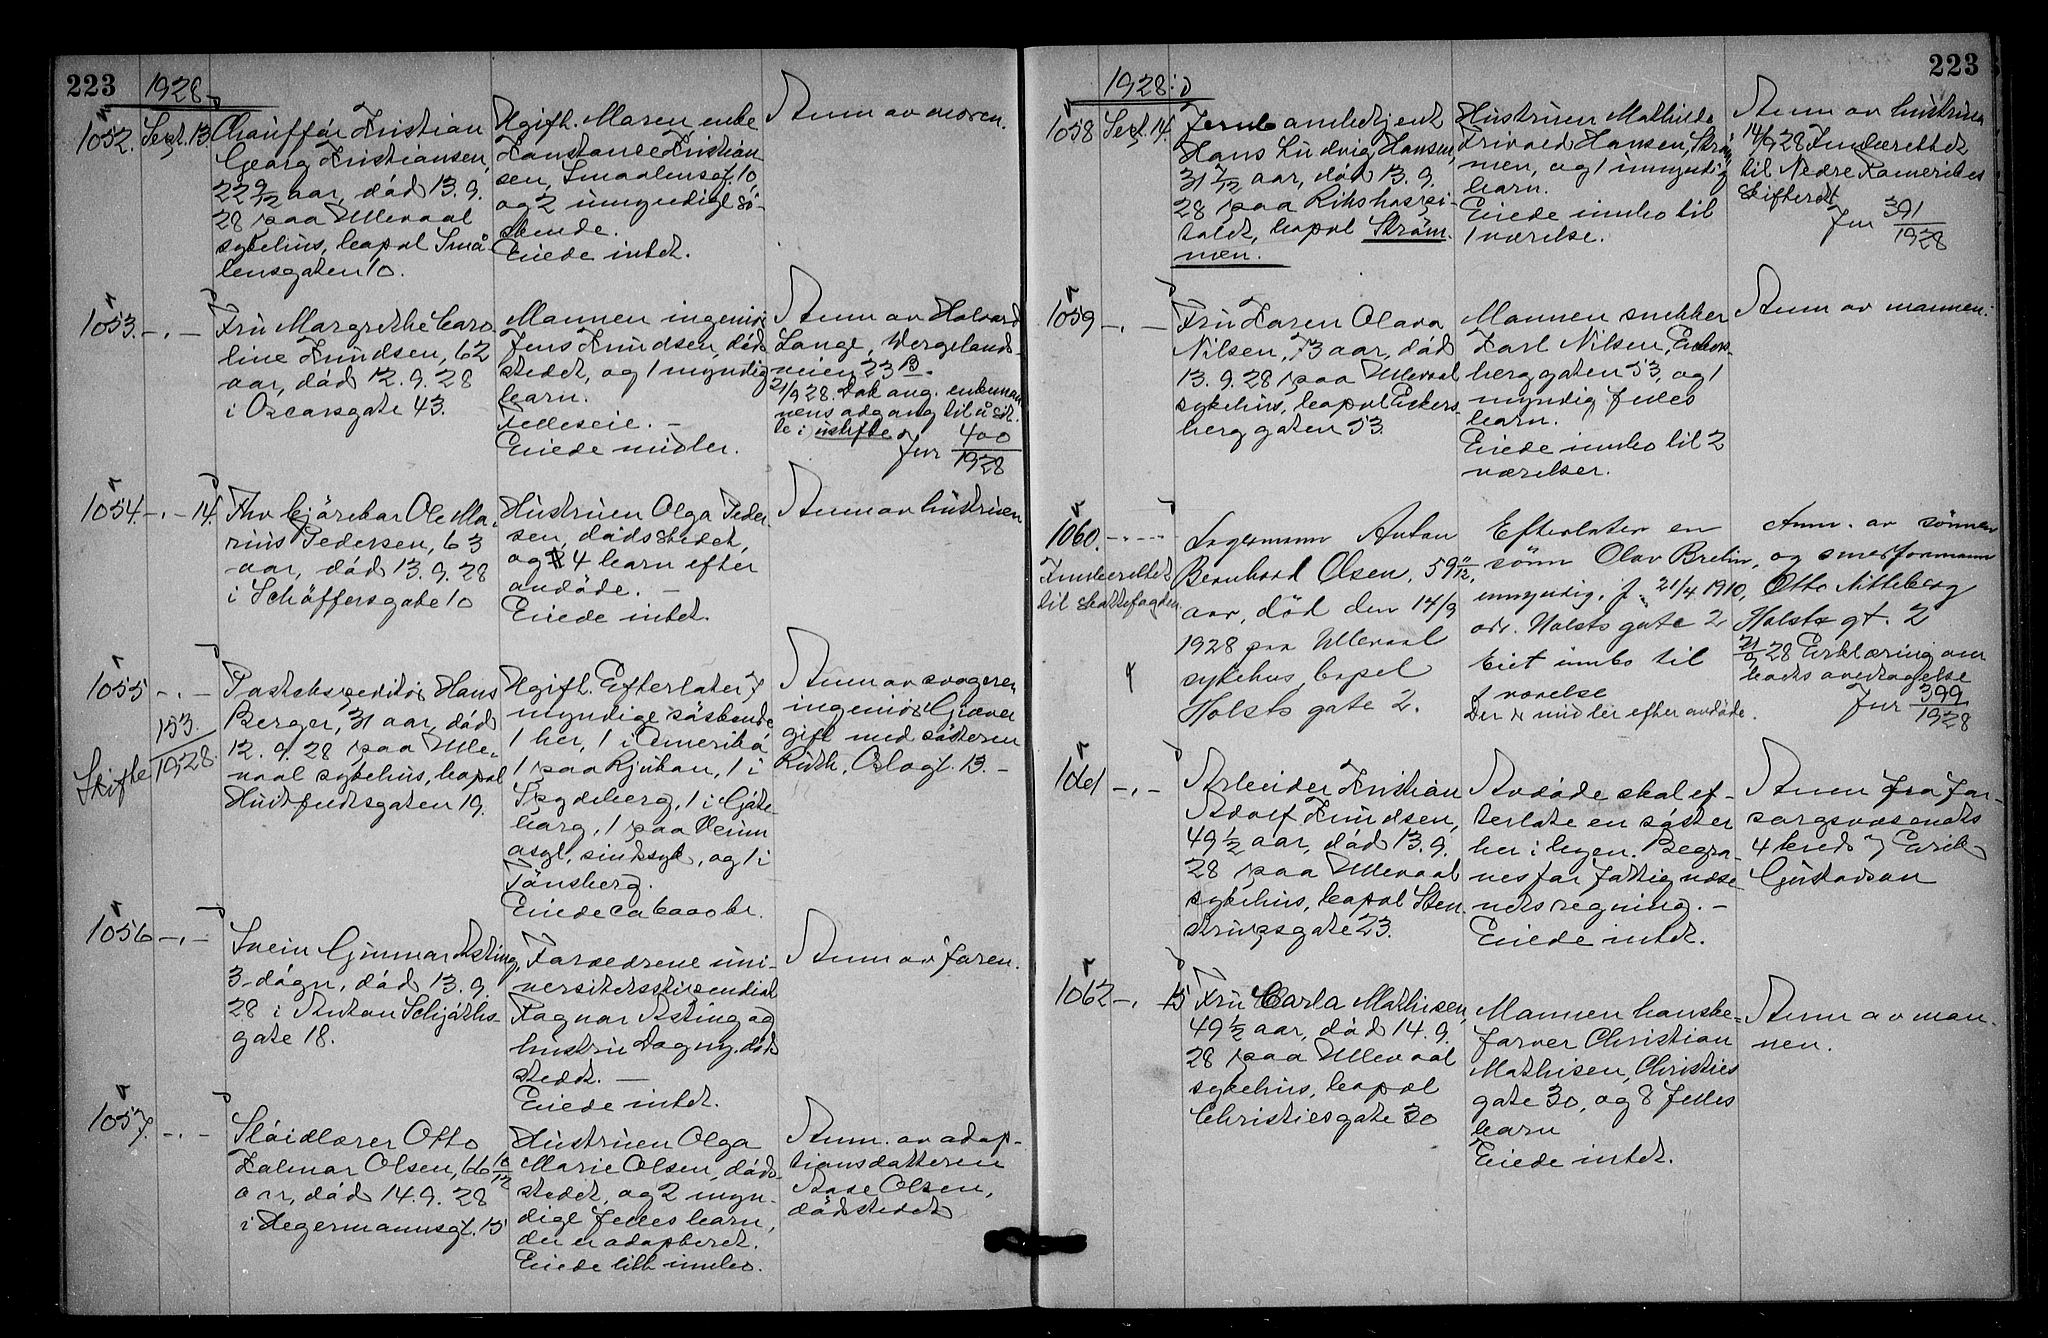 223
1928
1052. Sept. 13.
Chauffør Kristian
Georg Kristiansen,
22 9/12 aar, død 13.9.
28 paa Ullevaal
sykehus, bopæl Små
lensgaten 10.
Ugift. Moren enke
Konstance Kristian
sen, Smaalensg. 10
og 2 umyndige sø-
skende.
Eiede intet.
Anm av moren.
1053. -.-
Fru Margrethe Caro
line Knudsen, 62
aar, død 12.9.28
i Oscarsgate 43.
Mannen ingeniør
Jens Knudsen, døds
stedet, og 1 myndig
barn.
Felleseie. -
Eiede midler.
Anm av Halvard
Lange, Wergelands
veien 23 B.
21/9 28. Dok ang. enkeman
nens adgang til å sit
te i uskifte
Jnr 400/1928
1054. -.- 14.
Fhv kjørekar Ole Ma-
rius Pedersen, 63
aar, død 13.9.28
i Schøffersgate 10
Hustruen Olga Peder
sen, dødsstedet,
og 4 barn efter
avdøde. -
Eiede intet.
Anm av hustruen
1055 -.-
Skifte 153./1928.
Postekspeditør Hans
Berger, 31 aar, død
12.9.28 paa Ulle-
vaal sykehus, bopæl
Huitfeldtsgaten 19.
Ugift. Efterlater 7
myndige søskende
1 her, 1 i Amerika
1 paa Rjukan, 1 i
Spydeberg, 1 i Gøte
borg, 1 paa
asyl, sindsyk, og 1 i
Tønsberg.
Eiede ca 6000 kr.
Anm av svogeren
ingeniør Gjæver
gift med søsteren
Ruth, Oslogt. 13. -
1056 -.-
Svein Gunnar Asting,
3 døgn, død 13.9.
28 i Anton Schjøths-
gate 18.
Forældrene uni-
versitetsstipendiat
Ragnar Asting og
hustru Dagny, døds
stedet. -
Eiede intet.
Anm av faren.
1057. -.-
Sløidlærer Otto
Kalmar Olsen, 66 10/12
aar, død 14.9.28
i Hegermannsgt. 15
Hustruen Olga
Marie Olsen, døds
stedet, og 2 myn-
dige felles barn,
der er adopteret.
Eiede litt innbo.
Anm. av adop-
tionsdatteren
Aase Olsen,
dødsstedet
223
1928
1058 Sept. 14.
Jernb ambetsjent
Hans Ludvig Hansen,
31 7/12 aar, død 13.9.
28 paa Rikshospi-
talet, bopæl Strøm-
men.
Hustruen Mathilde
Trivold Hansen, Strøm
men, og 1 umyndig
barn.
Eiede innbo til
1 værelse.
Anm av hustruen
14/9 28 Innberettet
til Nedre Romerikes
skifterett
Jnr 391/1928
1059 -.-
Fru Karen Olava
Nilsen, 73 aar, død
13.9.28 paa Ullevaal
sykehus, bopæl Eckers
berggaten 53.
Mannen snekker
Karl Nilsen, Eckers-
berggaten 53, og 1
myndig felles
barn.
Eiede innbo til 2
værelser.
Anm av mannen.
1060. -..-
Innberettet
til skattefogden
Lagermann Anton
Bernhard Olsen, 59 11/12
aar, død den 14/9
1928 paa Ullevaal
sykehus, bopel
Holsts gate 2.
Efterlater en
sønn Olav Brelin,
umyndig, f. 21/4 1910,
adr. Holsts gate 2
Eiet innbo til
1 værelse
Der er midler efter avdøde.
Anm. av sønnen
og smedformann
Otto Nitteberg
Holsts gt. 2
21/9 28 Erklæring om
bods overtagelse
Jnr 399/1928
1061 -.-
Arbeider Kristian
Adolf Knudsen,
49 1/2 aar, død 13.9.
28 paa Ullevaal
sykehus, bopæl Sten
strupsgate 23.
Avdøde skal ef-
terlate en søster
her i byen. Begra-
ves for fattigvæse
nets regning. -
Eiede intet.
Anm fra For-
sorgsvæsenets
4 kreds v Eirik
Gustavson
1062 -.- 15
Fru Carla Mathisen,
49 1/2 aar, død 14.9.
28 paa Ullevaal
sykehus, bopæl
Christiesgate 30
Mannen hanske-
farver Christian
Mathisen, Christies
gate 30, og 8 felles
barn
Eiede intet.
Anm av man-
nen.